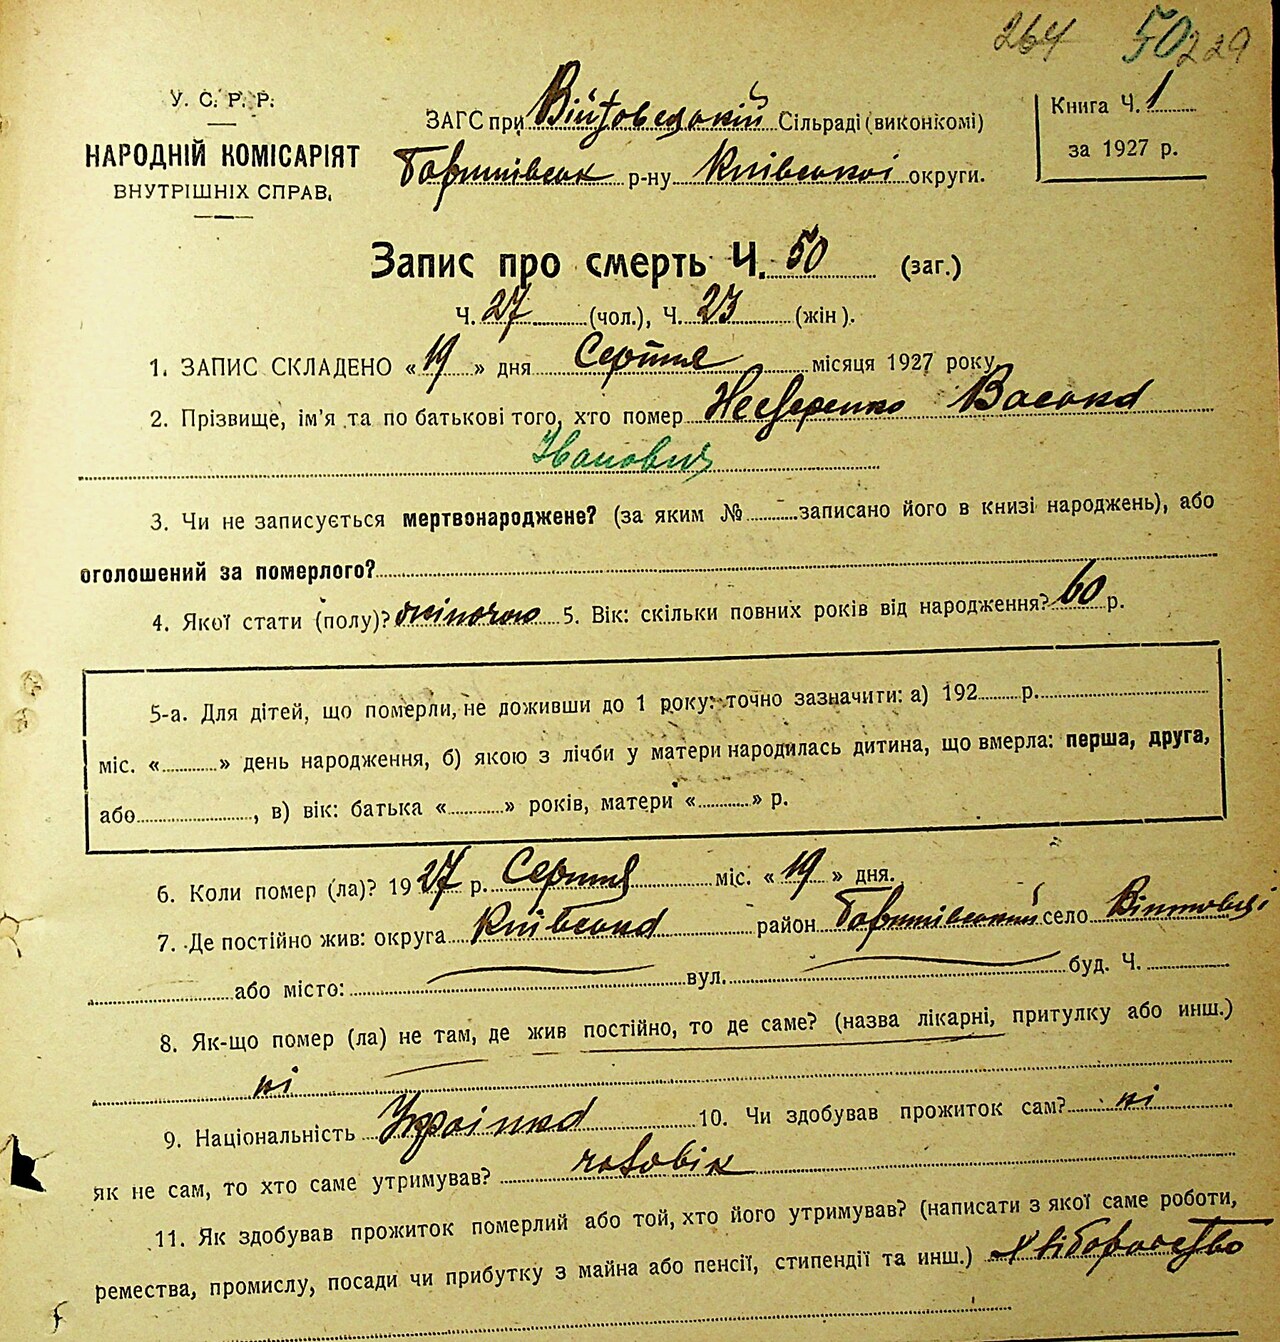 264 50 229
У. С. Р. Р.
НАРОДНІЙ КОМІСАРІЯТ
ВНУТРІШНІХ СПРАВ.
ЗАГС при Війтовецькій Сільраді (виконкомі)
Баришівськ р-ну Київської округи.
Книга Ч. 1
за 1927 р.
Запис про смерть Ч. 50 (заг.)
Ч. 27 (чол.), Ч. 23 (жін).
1. ЗАПИС СКЛАДЕНО «19» дня Серпня місяця 1927 року
2. Прізвище, ім'я та по батькові того, хто помер Нестеренко
Ивановна
3. Чи не записується мертвонароджене? (за яким № записано його в книзі народжень), або
оголошений за померлого?
4. Якої стати (полу)? жіночою 5. Вік: скільки повних років від народження? 60 р.
5-а. Для дітей, що померли, не доживши до 1 року: точно зазначити: а) 192 р.
міс. « » день народження, б) якою з лічби у матери народилась дитина, що вмерла: перша, друга,
або , в) вік: батька « » років, матери « » р.
6. Коли помер (ла)? 1927 р. Серпня міс. «19» дня.
7. Де постійно жив: округа Київська район Баришівський село Війтовці
або місто: вул. буд. Ч.
8. Як-що помер (ла) не там, де жив постійно, то де саме? (назва лікарні, притулку або инш.)
ні
9. Національність Українка 10. Чи здобував прожиток сам? ні
як не сам, то хто саме утримував? чоловік
11. Як здобував прожиток померлий або той, хто його утримував? (написати з якої саме роботи,
ремества, промислу, посади чи прибутку з майна або пенсії, стипендії та инш.) хліборобство